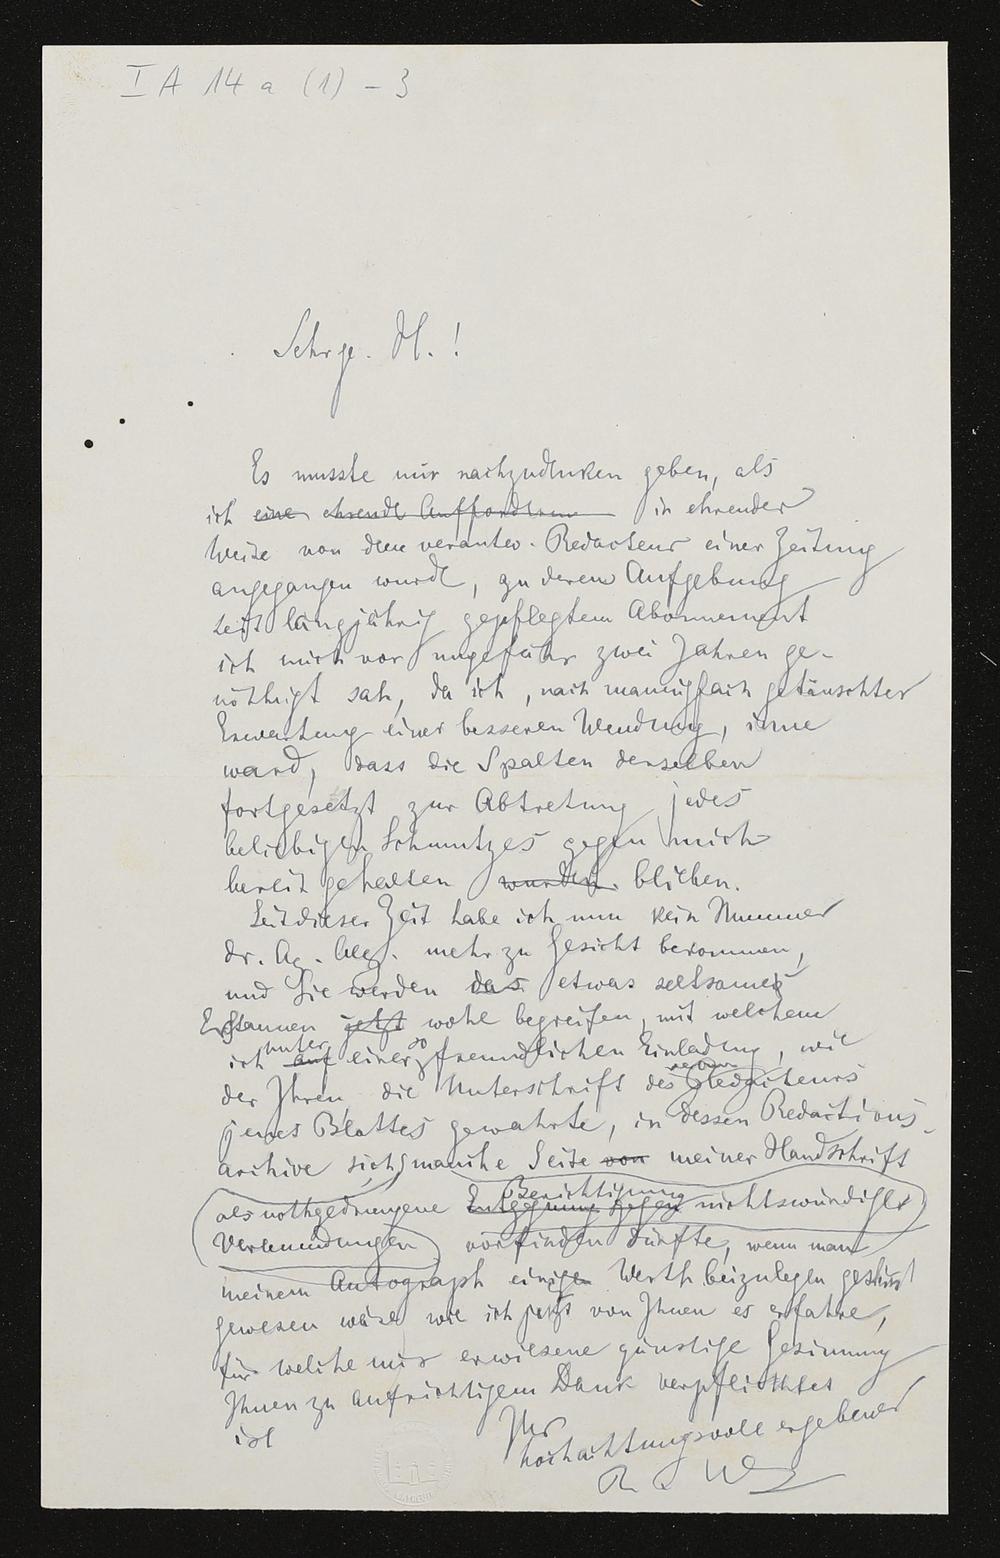 I A 14 a (1) - 3
Sehr ge. H. !
Es musste mir nachzudenken geben, als
ich eine ehrende Aufforderun in ehrender
Weise von dem verantw. Redacteur einer Zeitung
angegangen wurde, zu deren Aufgebung
seit langjährig gepflegtem Abonnement
ich mich vor ungefähr zwei Jahren ge-
nöthigt sah, da ich, nach mannigfach getäuschter
Erwartung einer besseren Wendung, inne
ward, dass die Spalten derselben
fortgesetzt zur Abtretung jedes
beliebigen Schmutzes gegen mich
bereit gehalten wurden. blieben.
Seit dieser Zeit habe ich nun kein Nummer
dr. Ag. Allg. mehr zu Gesicht bekommen,
und Sie werden das etwas seltsames
Erstaunen jetzt wohl begreifen, mit welchem
ich auf unter einer so freundlichen Einladung, wie
der Ihren die Unterschrift des Redacteurs
jenes Blattes gewahrte, in dessen Redactions-
archive sich manche Seite von meiner Handschrift
als nothgedrungene Entgegnung gegen Berichtigung nichtswürdiger
Verleumdungen vorfinden dürfte, wenn man
meinem Autograph einigen Werth beizulegen
gewesen wäre wie ich jetzt von Ihnen es erfahre,
für welche mir erwiesene günstige Gesinnung
Ihnen zu aufrichtigem Dank verpflichtet
ist
Ihr
hochachtungsvoll ergebener